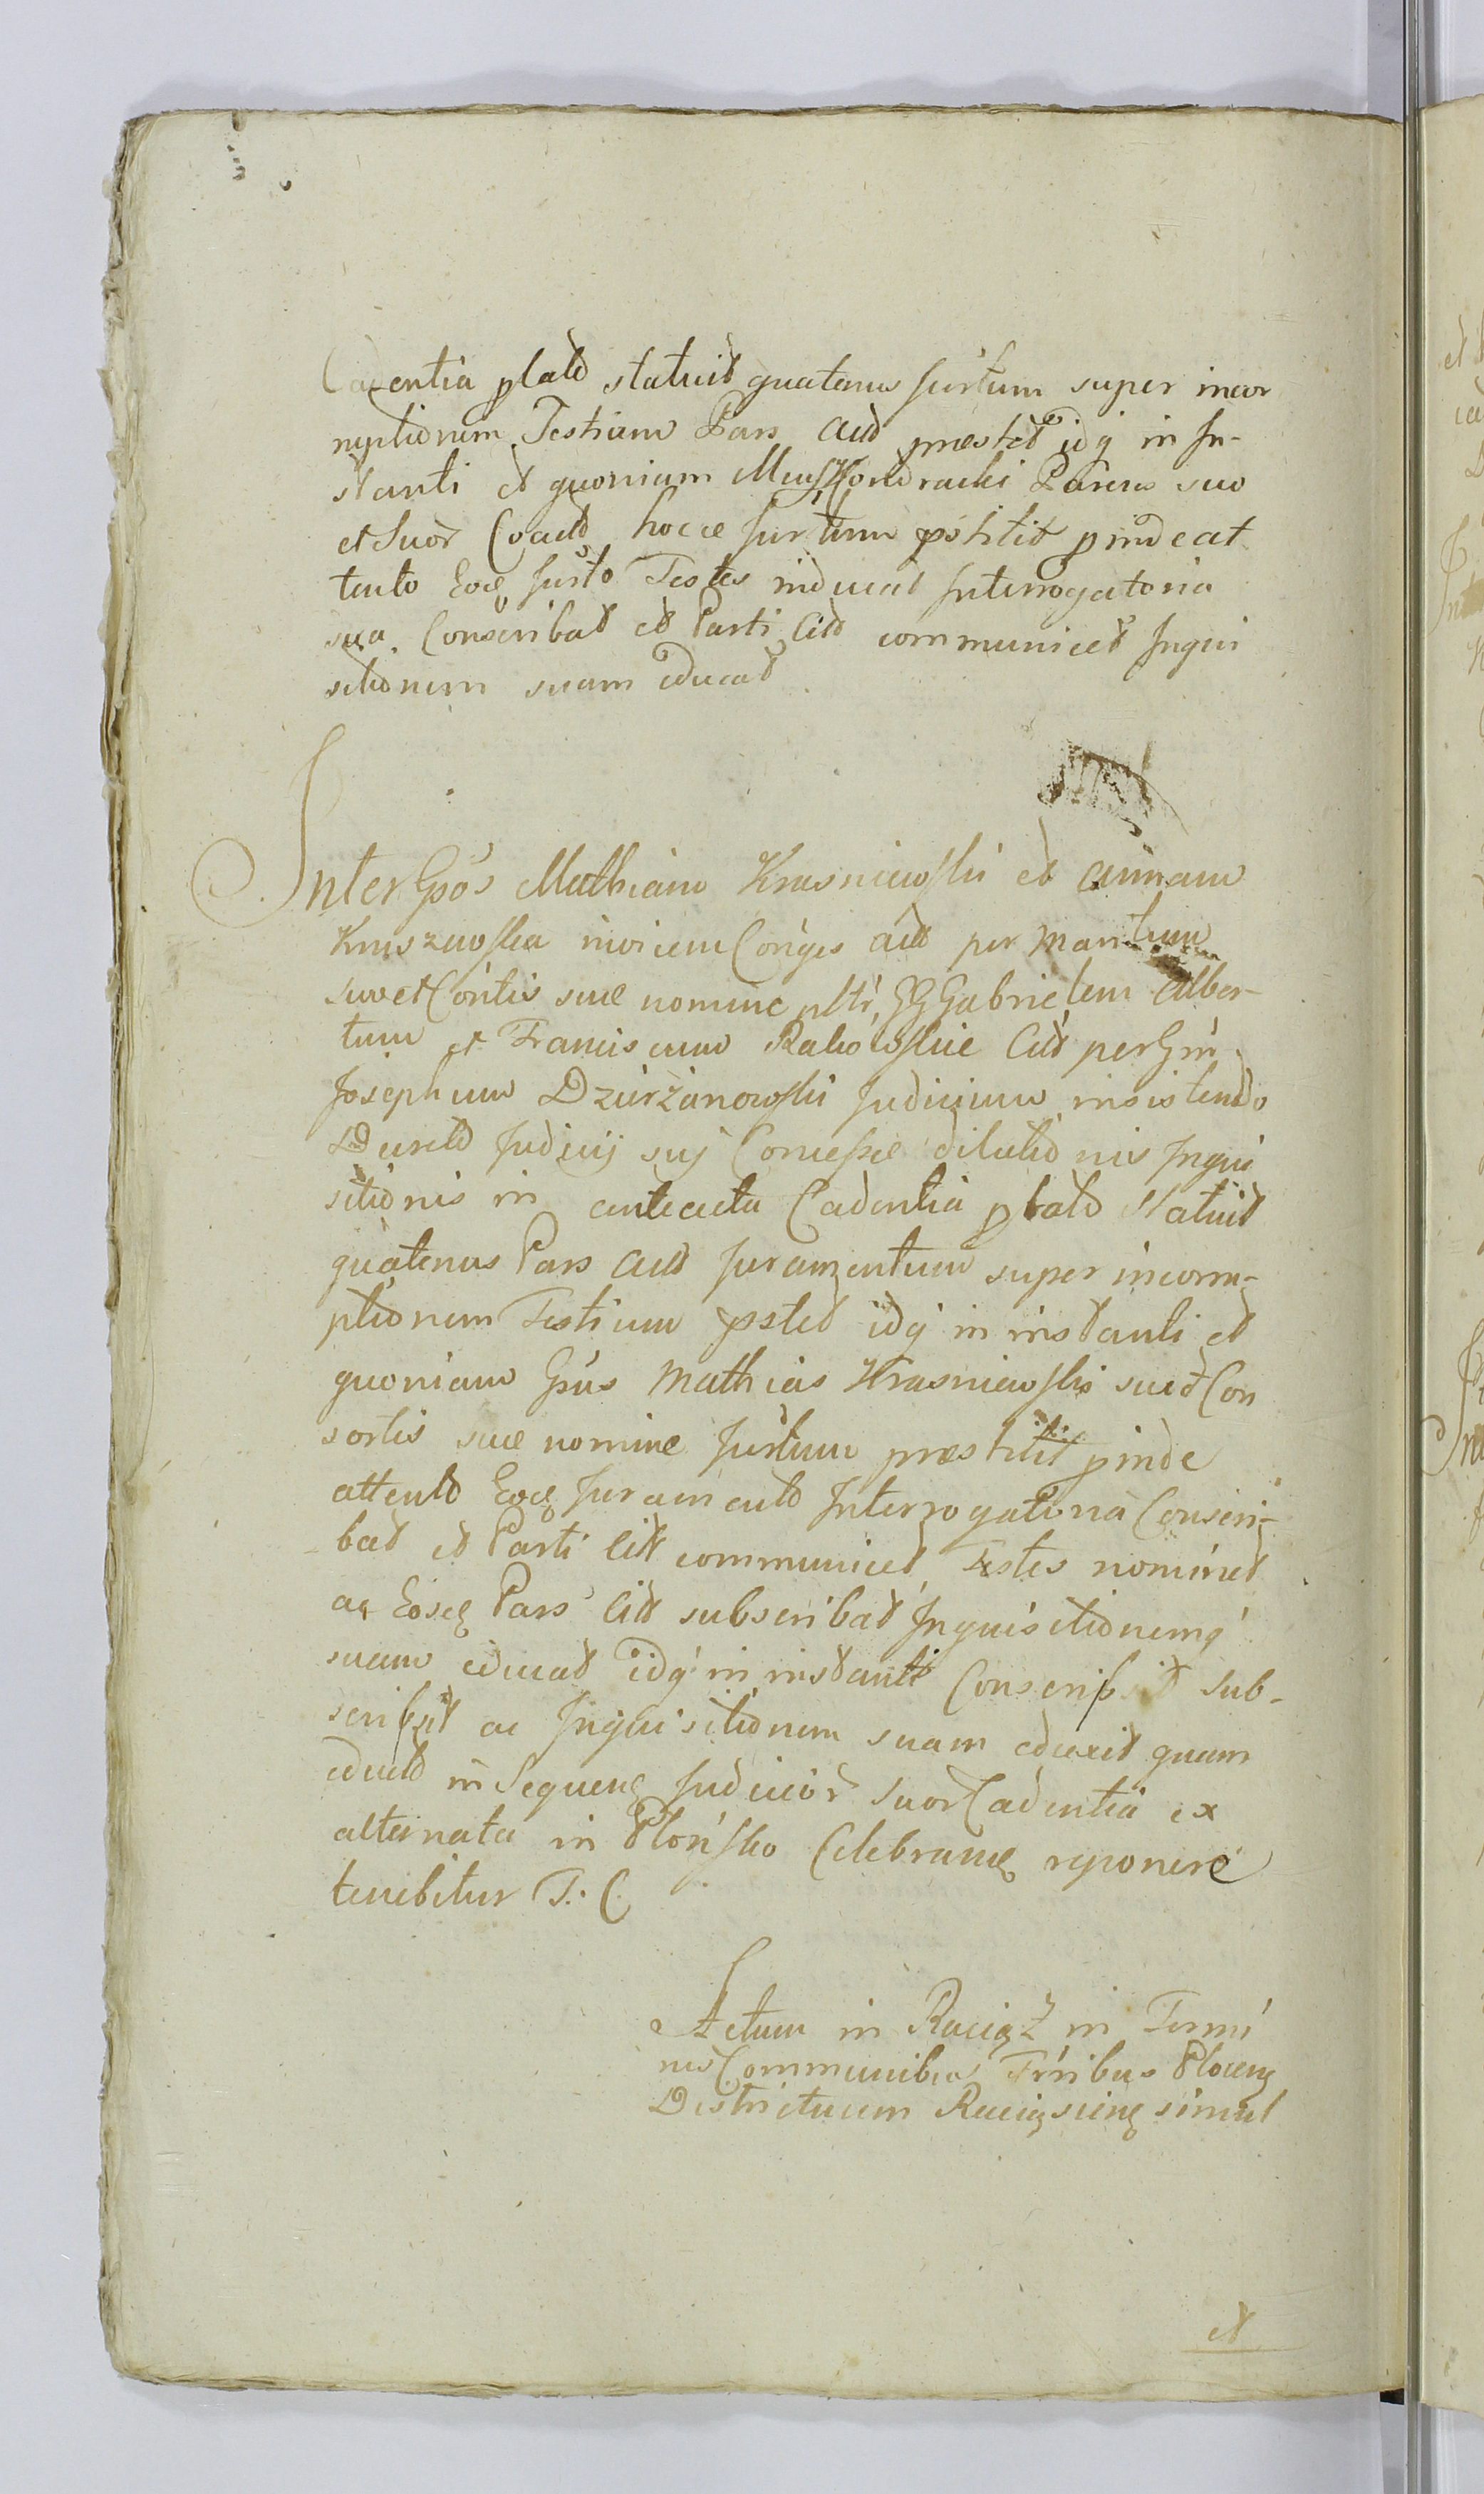 Cadentia plato statuit quatenus Jurtum super incor
ruptionem Testium Pars Act praestet idq in In-
stanti et quoniam Kondracki Parens suo
et Suor Coact hocce Jurtum pstitit pinde at
tento Eoq Jurto Testes inducat Interrogatoria
sua Conscribat et Parti Cit communicet Inqui
sitionem suam educat
Inter Gsos Mathiam Krasniewski et Annam
Kruszewska invicem Conges Act per Maritum
suo et Contis suae nomine GG Gabrielem Alber-
tum et Franciscum Rakowskie Cit per Gm
Josephum Dzierżanowski Judicium insistendo
Decreto Judicij suj Concessae dilationis Inqui
sitionis in anteacta Cadentia plato Statuit
quatenus Pars Act Juramentum super incorru-
ptionem Testium pstet idq in instanti et
quoniam Gsus Mathias Krasniewski suo et Con
sortis suae nomine Jurtum praestitit pinde
attento Eoq Juramento Interrogatoria Conscri-
bat et Parti Cit communicet, Testes nominet
ac Eosq Pars Cit subscribat Inquisitionemq
suam educat idq in instanti Conscripsit sub-
scripsit ac Inquisitionem suam eduxit quam
educto in Sequenq Judicior suor Cadentia ex
alternata in Płońsko Celebranq reponere
tenebitur T. C.
Actum in Raciąż in Termi
nis Communibus Trribus Plocenq
Districtuum Raciązsienq simul
et